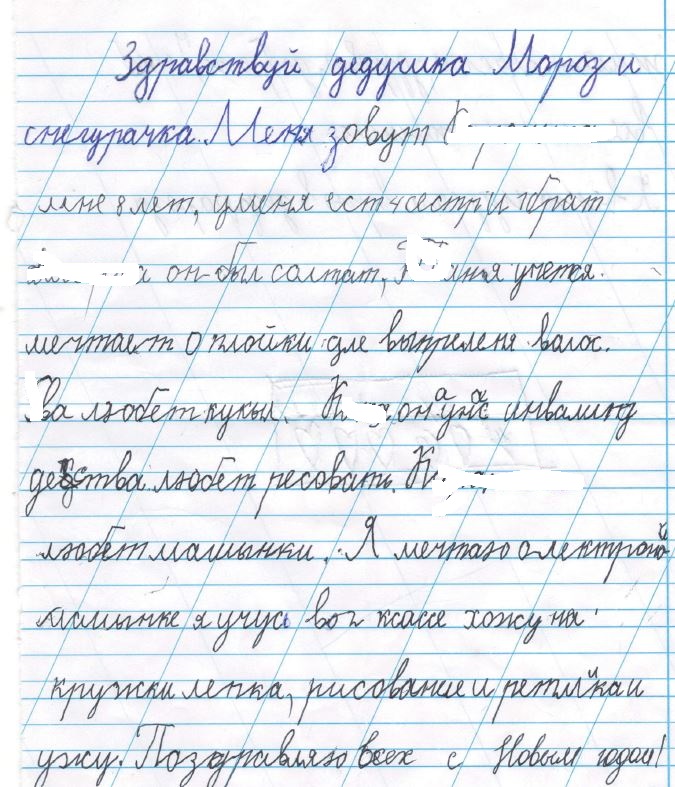 Здравствуй дедушка Мороз и
снегурачка. Меня зовут К
мне 8 лет, уменя ест 4 сестры и 1 брат
а он был солтат, учется.
мечтает о плойки дле валос.
Ва любет кукыл. К он а у нас инвалинд
детства любет ресовать. К
любет машынки. Я мечтаю о лектроной
машынке я учус во 2 класе хожу на
кружки лепка, рисование и
ужу. Поздравляю всех с Новым годом!